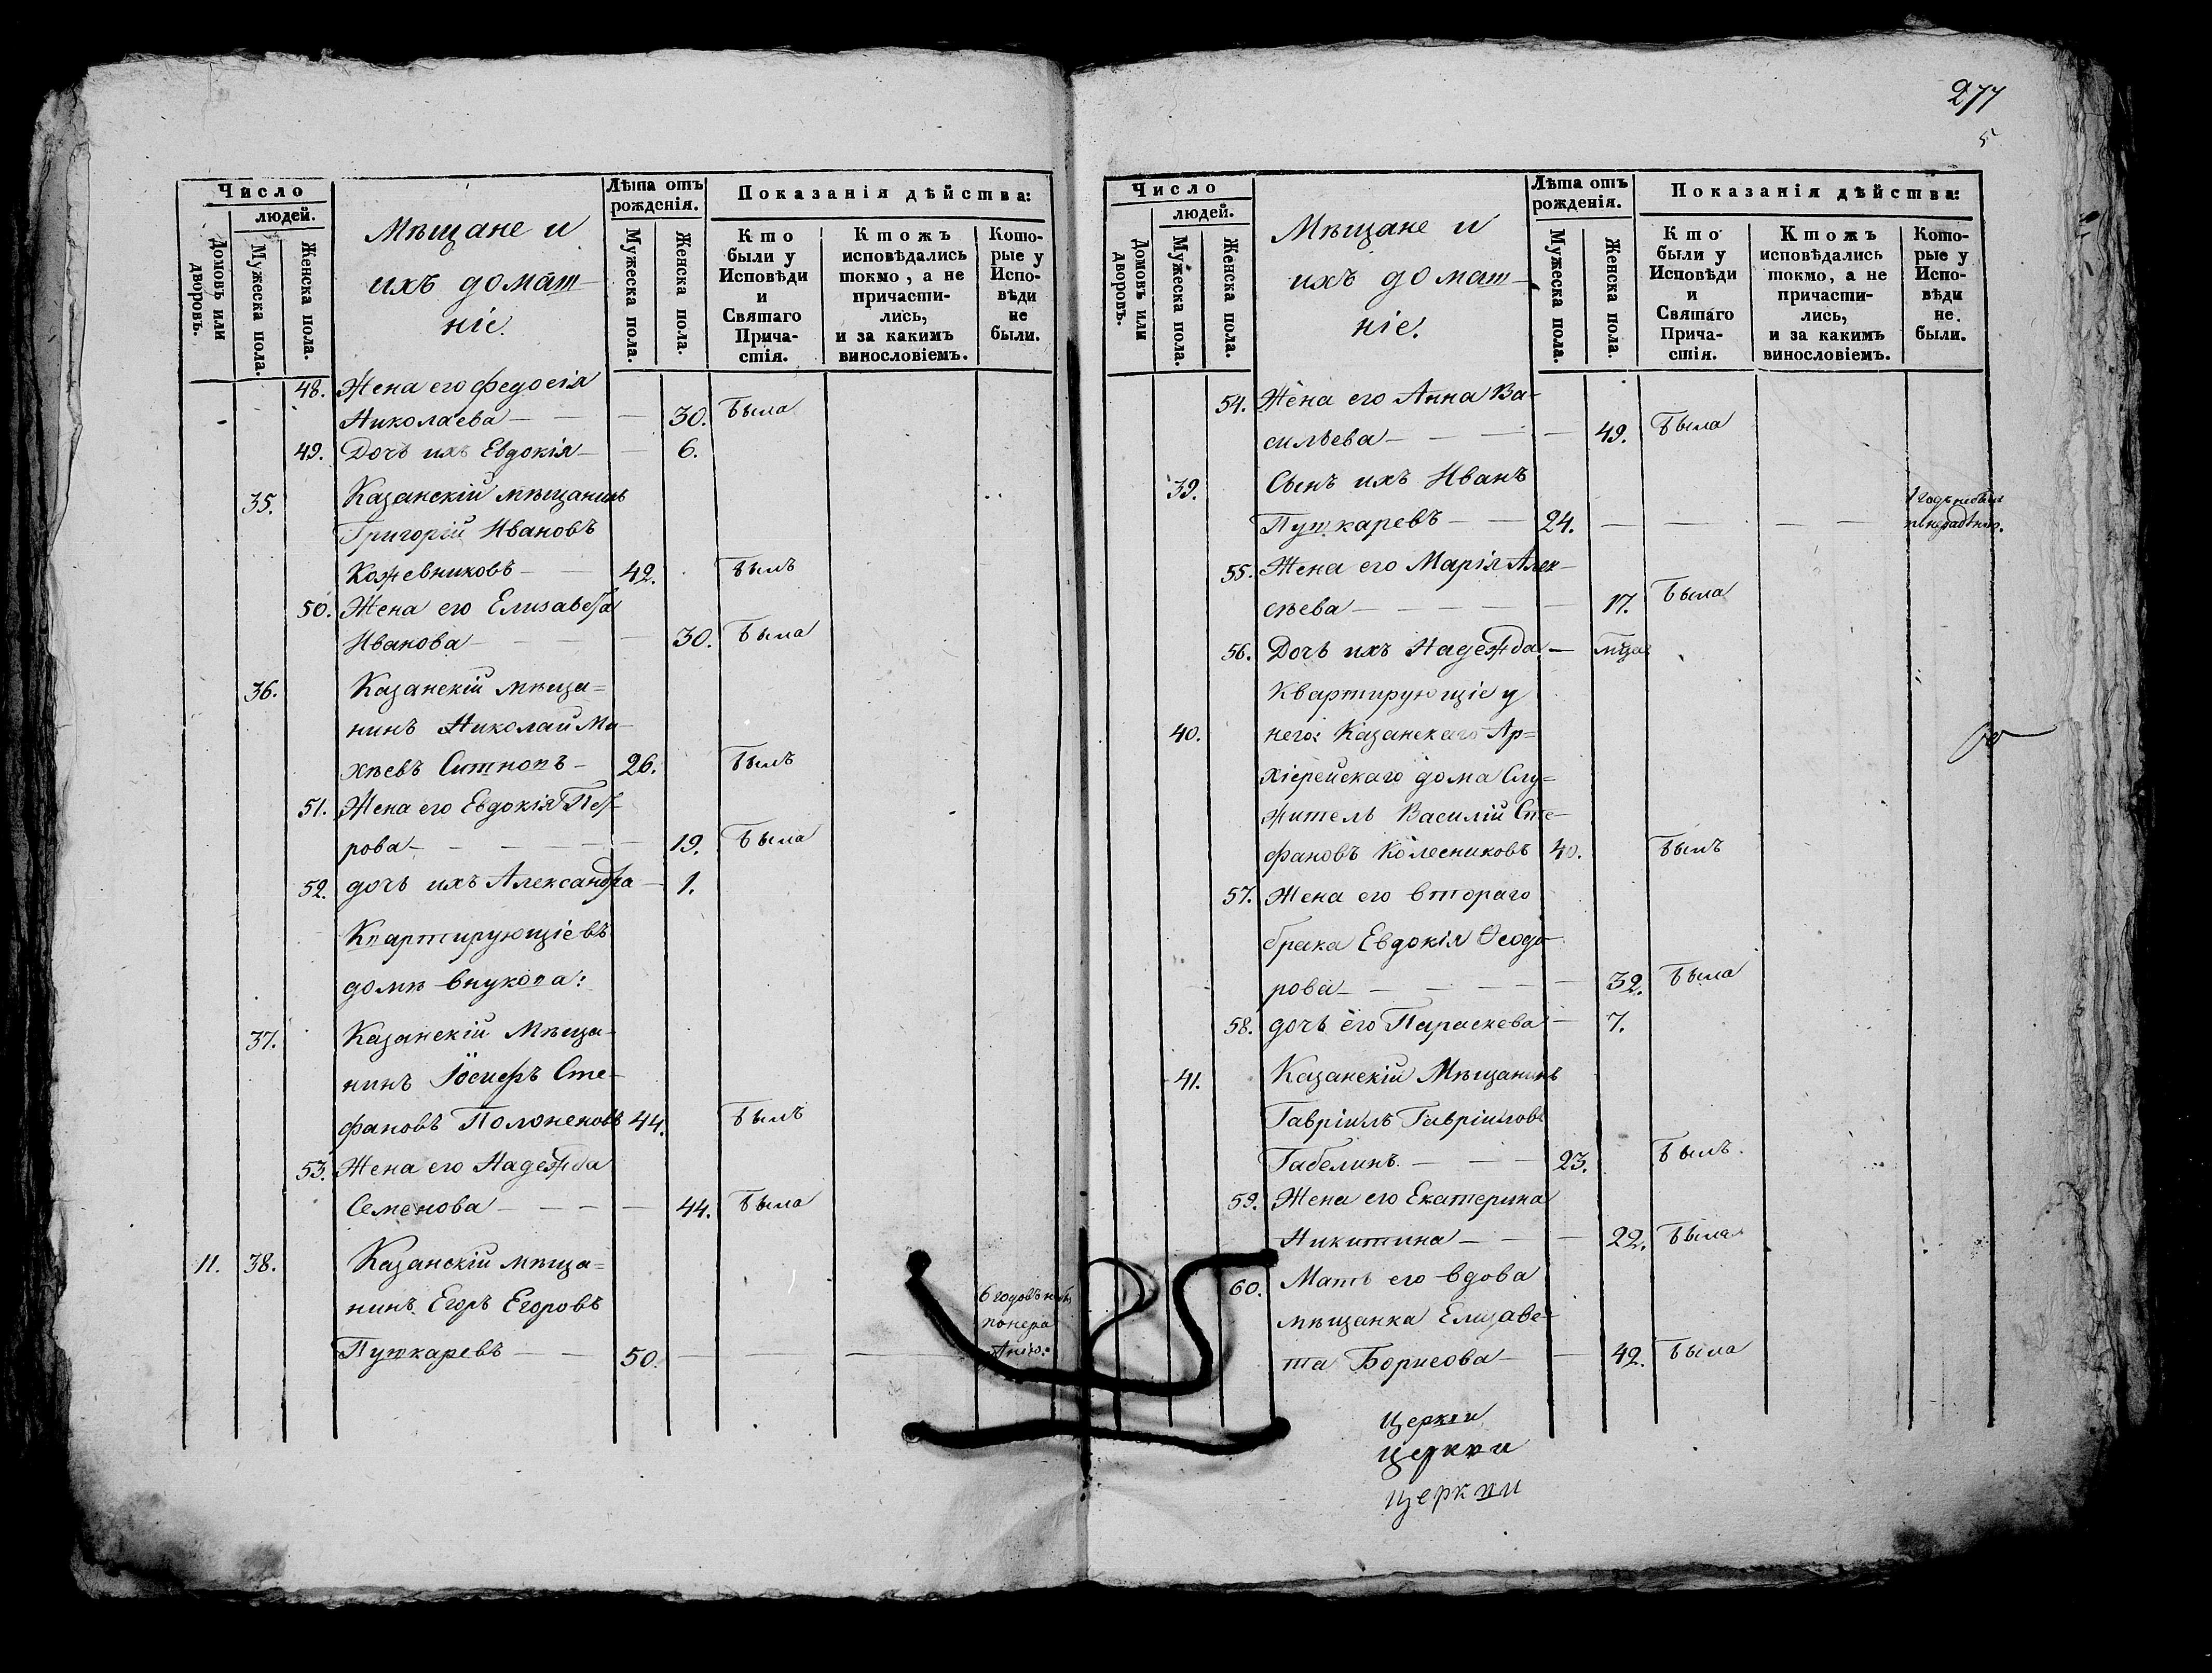 Число
людей.
Домовъ или дворовъ.
Мужеска пола.
Женска пола.
Мѣщане и
ихъ домаш-
ніе.
Лѣта отъ
рожденія.
Мужеска пола.
Женска пола.
Показанія дѣйства:
Кто
были у
Исповѣди
и
Святаго
Прича-
стія.
Ктожъ
исповѣдались
токмо, а не
причасти-
лись,
и за какимъ
винословіемъ.
Кото-
рые у
Испо-
вѣди
не
были.
48. Жена его Федосія
Николаева — — — 30. Была
49. Дочь ихъ Евдокія — — 6.
35. Казанскій мѣщанинъ
Григорій Ивановъ
Кожевниковъ — — 42. Былъ
50. Жена его Елисавета
Иванова — — — 30. Была
36. Казанскій мѣща=
нинъ Николай Ми-
хѣевъ Ситновъ — 26. Былъ
51. Жена его Евдокія Пет-
рова — — — — 19. Была
52. дочь ихъ Александра — 1.
Квартирующіе въ
домѣ Внукова:
37. Казанскій Мѣща-
нинъ Іосифъ Сте-
фановъ 44. Былъ
53. Жена его Надежда
Семенова — — — — 44. Была
11. 38. Казанскій мѣща=
нинъ Егоръ Егоровъ
6 годовъ
понера
дѣнію.
Пушкаревъ — — 50. — — —
277
5
Число
людей.
Домовъ или дворовъ.
Мужеска пола.
Женска пола.
Мѣщане и
ихъ домаш-
ніе.
Лѣта отъ
рожденія.
Мужеска пола.
Женска пола.
Показанія дѣйства:
Кто
были у
Исповѣди
и
Святаго
Прича-
стія.
Ктожъ
исповѣдались
токмо, а не
причасти-
лись,
и за какимъ
винословіемъ.
Кото-
рые у
Испо-
вѣди
не
были.
54. Жена его Анна Ва-
сильева — — — — 49. Была
39. Сынъ ихъ Иванъ
Пушкаревъ — — 24. — — — —
55. Жена его Марія Алек-
сѣева — — — — 17. Была
56. Дочь ихъ Надежда —
Квартирующіе у
40. него: Казанскаго Ар=
хіерейскаго дома Слу=
житель Василій Сте-
фановъ Колесниковъ 40. Былъ
57. Жена его втораго
брака Евдокія Ѳеодо-
рова — — — — 32. Была
58. дочь его Параскева — 7.
41. Казанскій Мѣщанинъ
Гавріилъ Гавріиловъ
Габелинъ — — — 23. Былъ.
59. Жена его Екатерина
Никитина — — — 22. Была
60. Мать его вдова
мѣщанка Елизаве-
та Борисова — — 42. Была
Церкви
церкви
церкви